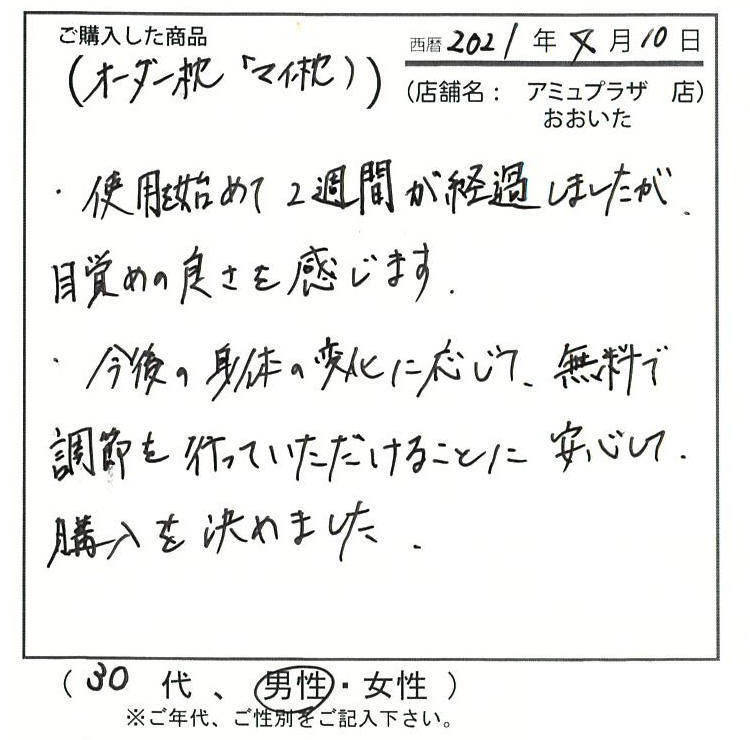 ご購入した商品
西暦 2021 年 月 10 日
(オーダー枕 「マイ枕」)
(店舗名： アミュプラザ 店)
おおいた
・使用を始めて2週間が経過しましたが、
目覚めの良さを感じます.
・今後の身体の変化に応じて、無料で
調節を行っていただけることに安心して、
購入を決めました.
(30 代、男性・女性)
※ご年代、ご性別をご記入下さい。